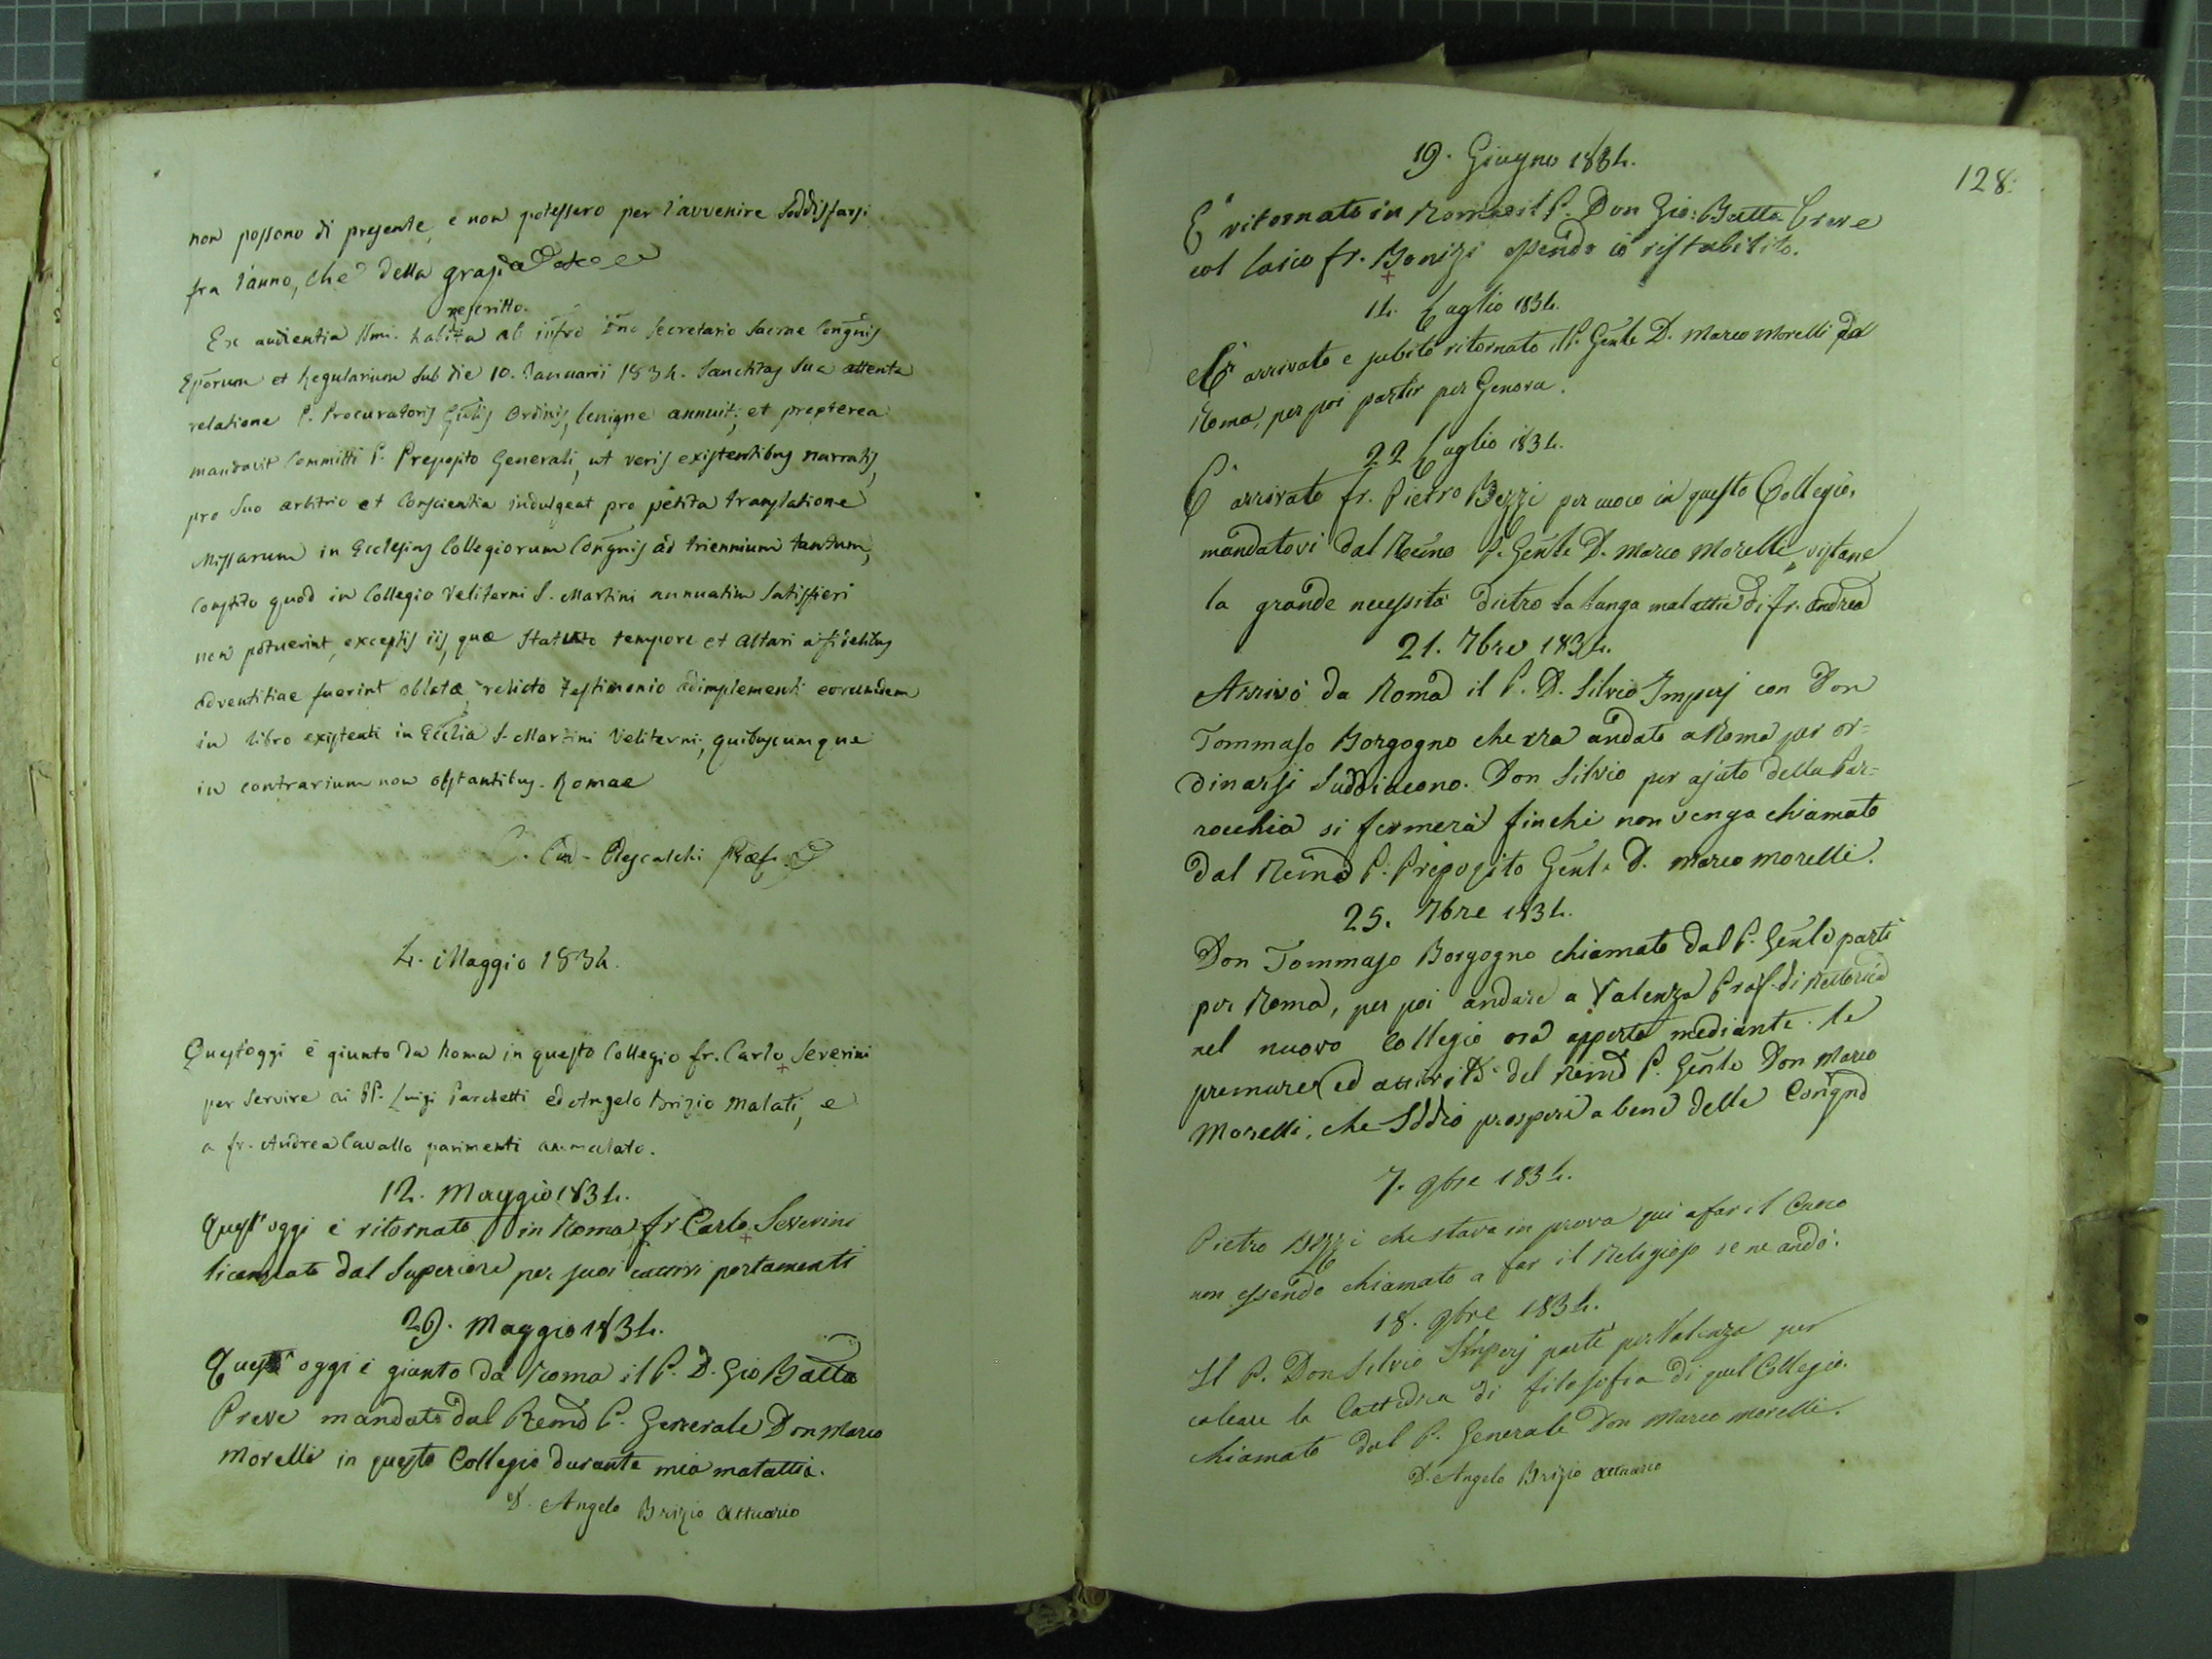 non possono di presente, e non potessero per l'avvenire soddisfarsi
fra l'anno, che della grazia
rescritto.
Ex audientia SSmi. habita ab infro Dno Secretario Sacrae Congnis
Eporum et Regularium sub die 10. Januarii 1834. Sanctitas Sua attenta
relatione P. Procuratoris Gnlis Ordinis, benigne annuit; et propterea
mandavit committi P. Preposito Generali, ut veris existentibus narratis,
pro suo arbitrio et conscientia indulgeat pro petita translatione
Missarum in Ecclesias Collegiorum Congnis ad triennium tantum,
constito quod in Collegio Veliterni S. Martini annuatim satisfieri
non potuerint, exceptis iis, quae statuto tempore et altari a fidelibus
adventitiae fuerint oblatae, relicto testimonio adimplementi eorumdem
in libro existenti in Ecclia S. Martini Veliterni, quibuscumque
in contrarium non obstantibus. Romae
C. Car. Odescalchi Praef.
4. Maggio 1834.
Quest'oggi è giunto da Roma in questo Collegio fr. Carlo Severini
per servire ai PP. Luigi Parchetti ed Angelo Brizio malati, e
a fr. Andrea Cavallo parimenti ammalato.
12. Maggio 1834.
Quest'oggi è ritornato in Roma fr Carlo Severini
licenziato dal Superiore per suoi cattivi portamenti
29. Maggio 1834.
Quest' oggi è giunto da Roma il P. D. Gio Batta
Preve mandato dal Remo P. Generale Don Marco
Morelli in questo Collegio durante mia malattia.
D. Angelo Brizio Attuario
128.
19. Giugno 1834.
E' ritornato in Roma il P. Don Gio: Batta Preve
col laico fr. Bonizi essendo io ristabilito.
14. Luglio 1834.
E' arrivato e subito ritornato il P. Genle D. Marco Morelli da
Roma, per poi partir per Genova.
22 Luglio 1834.
E' arrivato fr. Pietro Bezzi per cuoco in questo Collegio,
mandatovi dal Remo P. Genle D. Marco Morelli, vistane
la grande necessità dietro la lunga malattia di fr. Andrea
21. 7bre 1834.
Arrivò da Roma il P. D. Silvio Imperj con Don
Tommaso Borgogno che era andato a Roma per or=
dinarsi Suddiacono. Don Silvio per ajuto della Par=
rocchia si fermerà finchè non venga chiamato
dal Remo P. Preposito Genle D. Marco Morelli.
25. 7bre 1834.
Don Tommaso Borgogno chiamato dal P. Genle partì
per Roma, per poi andare a Valenza Prof. di Rettorica
nel nuovo Collegio ora apperto mediante le
premure ed attività del Remo P. Genle Don Marco
Morelli, che Iddio prosperi a bene della Congne
7. 9bre 1834.
Pietro Bezzi che stava in prova qui a far il Cuoco
non essendo chiamato a far il Religioso se ne andò.
18. 9bre 1834.
Il P. Don Silvio Imperj partì per Valenza per
calcare la Cattedra di filosofia di quel Collegio.
chiamato dal P. Generale Don Marco Morelli.
D. Angelo Brizio Attuario